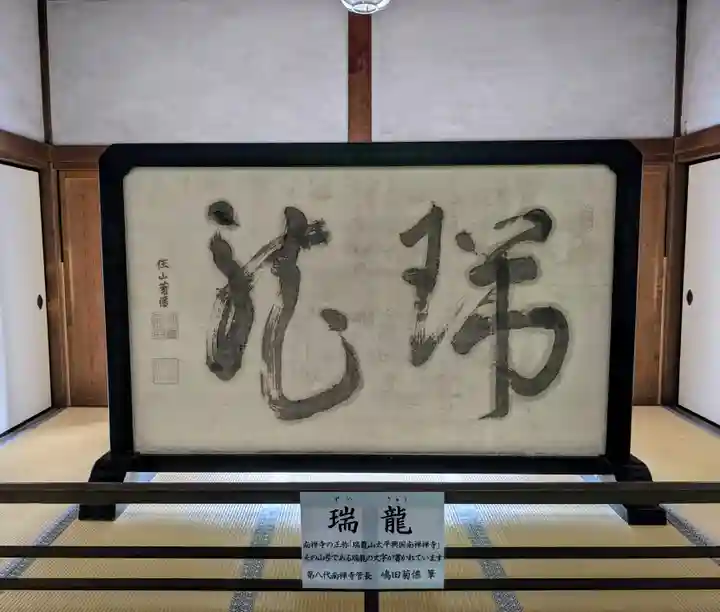 瑞龍
住山菊僊
ずい りゅう
瑞龍
南禅寺の正称「瑞龍山太平興国南禅禅寺」
その山号である瑞龍の文字が書かれています
第八代南禅寺管長 嶋田菊僊 筆